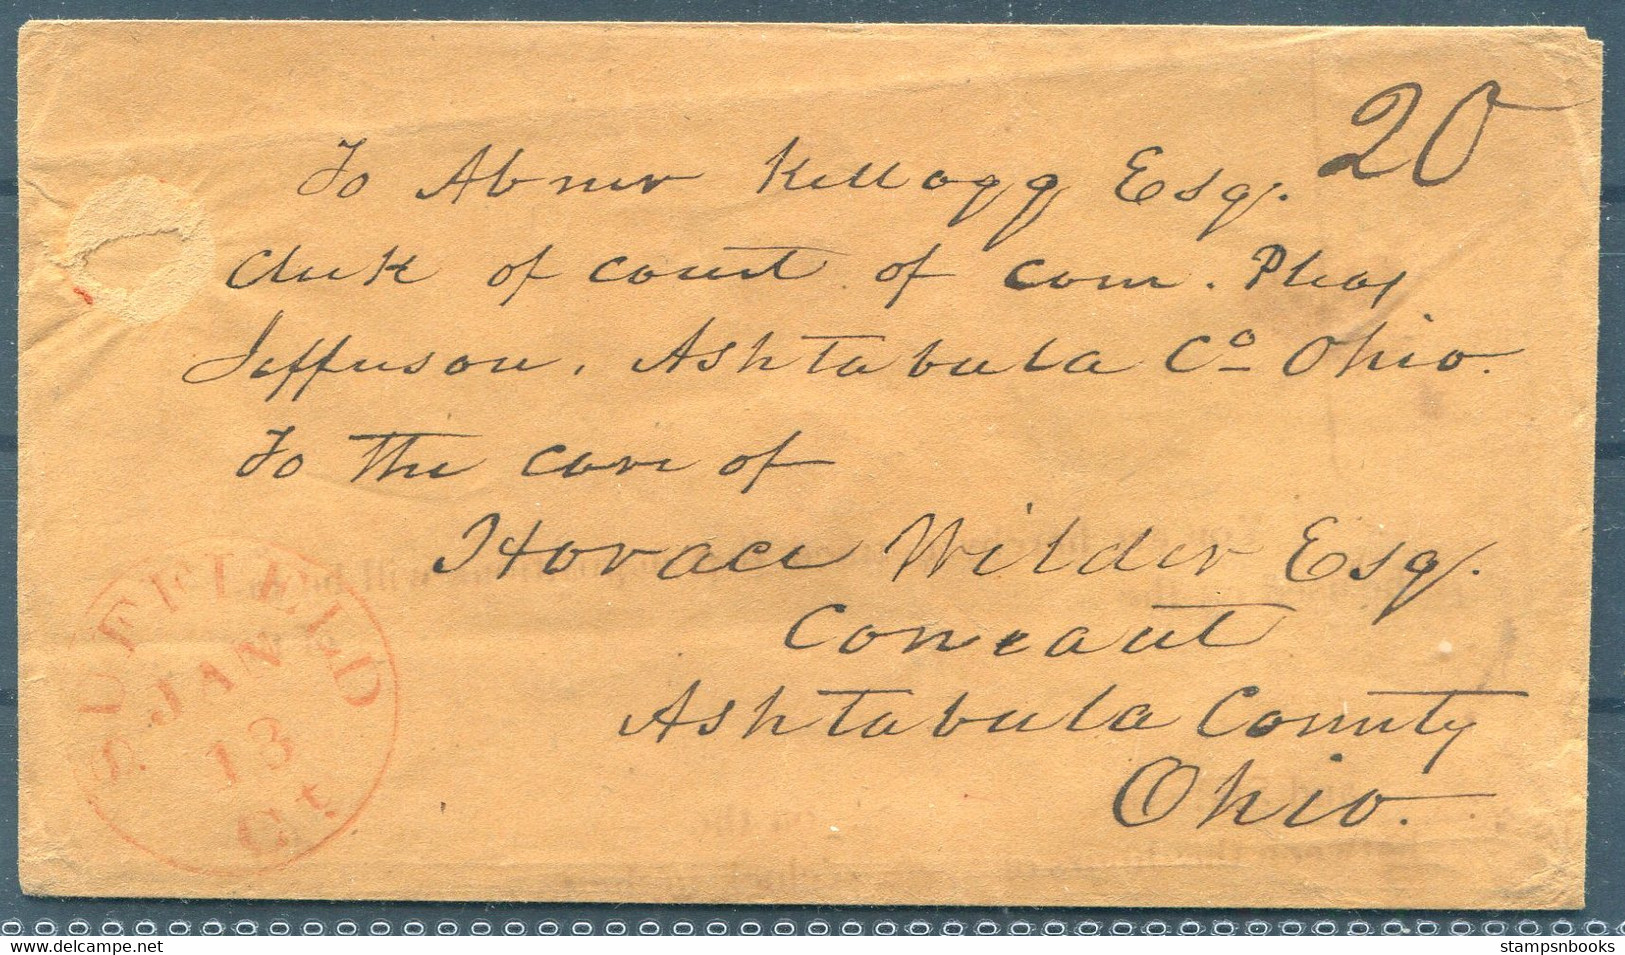 20
To Abner Kellogg Esq.
Clerk of Court of Com. Pleas
Jefferson, Ashtabula Co Ohio.
To the care of
Horace Wilder Esq.
Conneaut
Ashtabula County
Ohio.
SUFFIELD
JAN
13
Ct.
stampsnbooks
www.delcampe.net